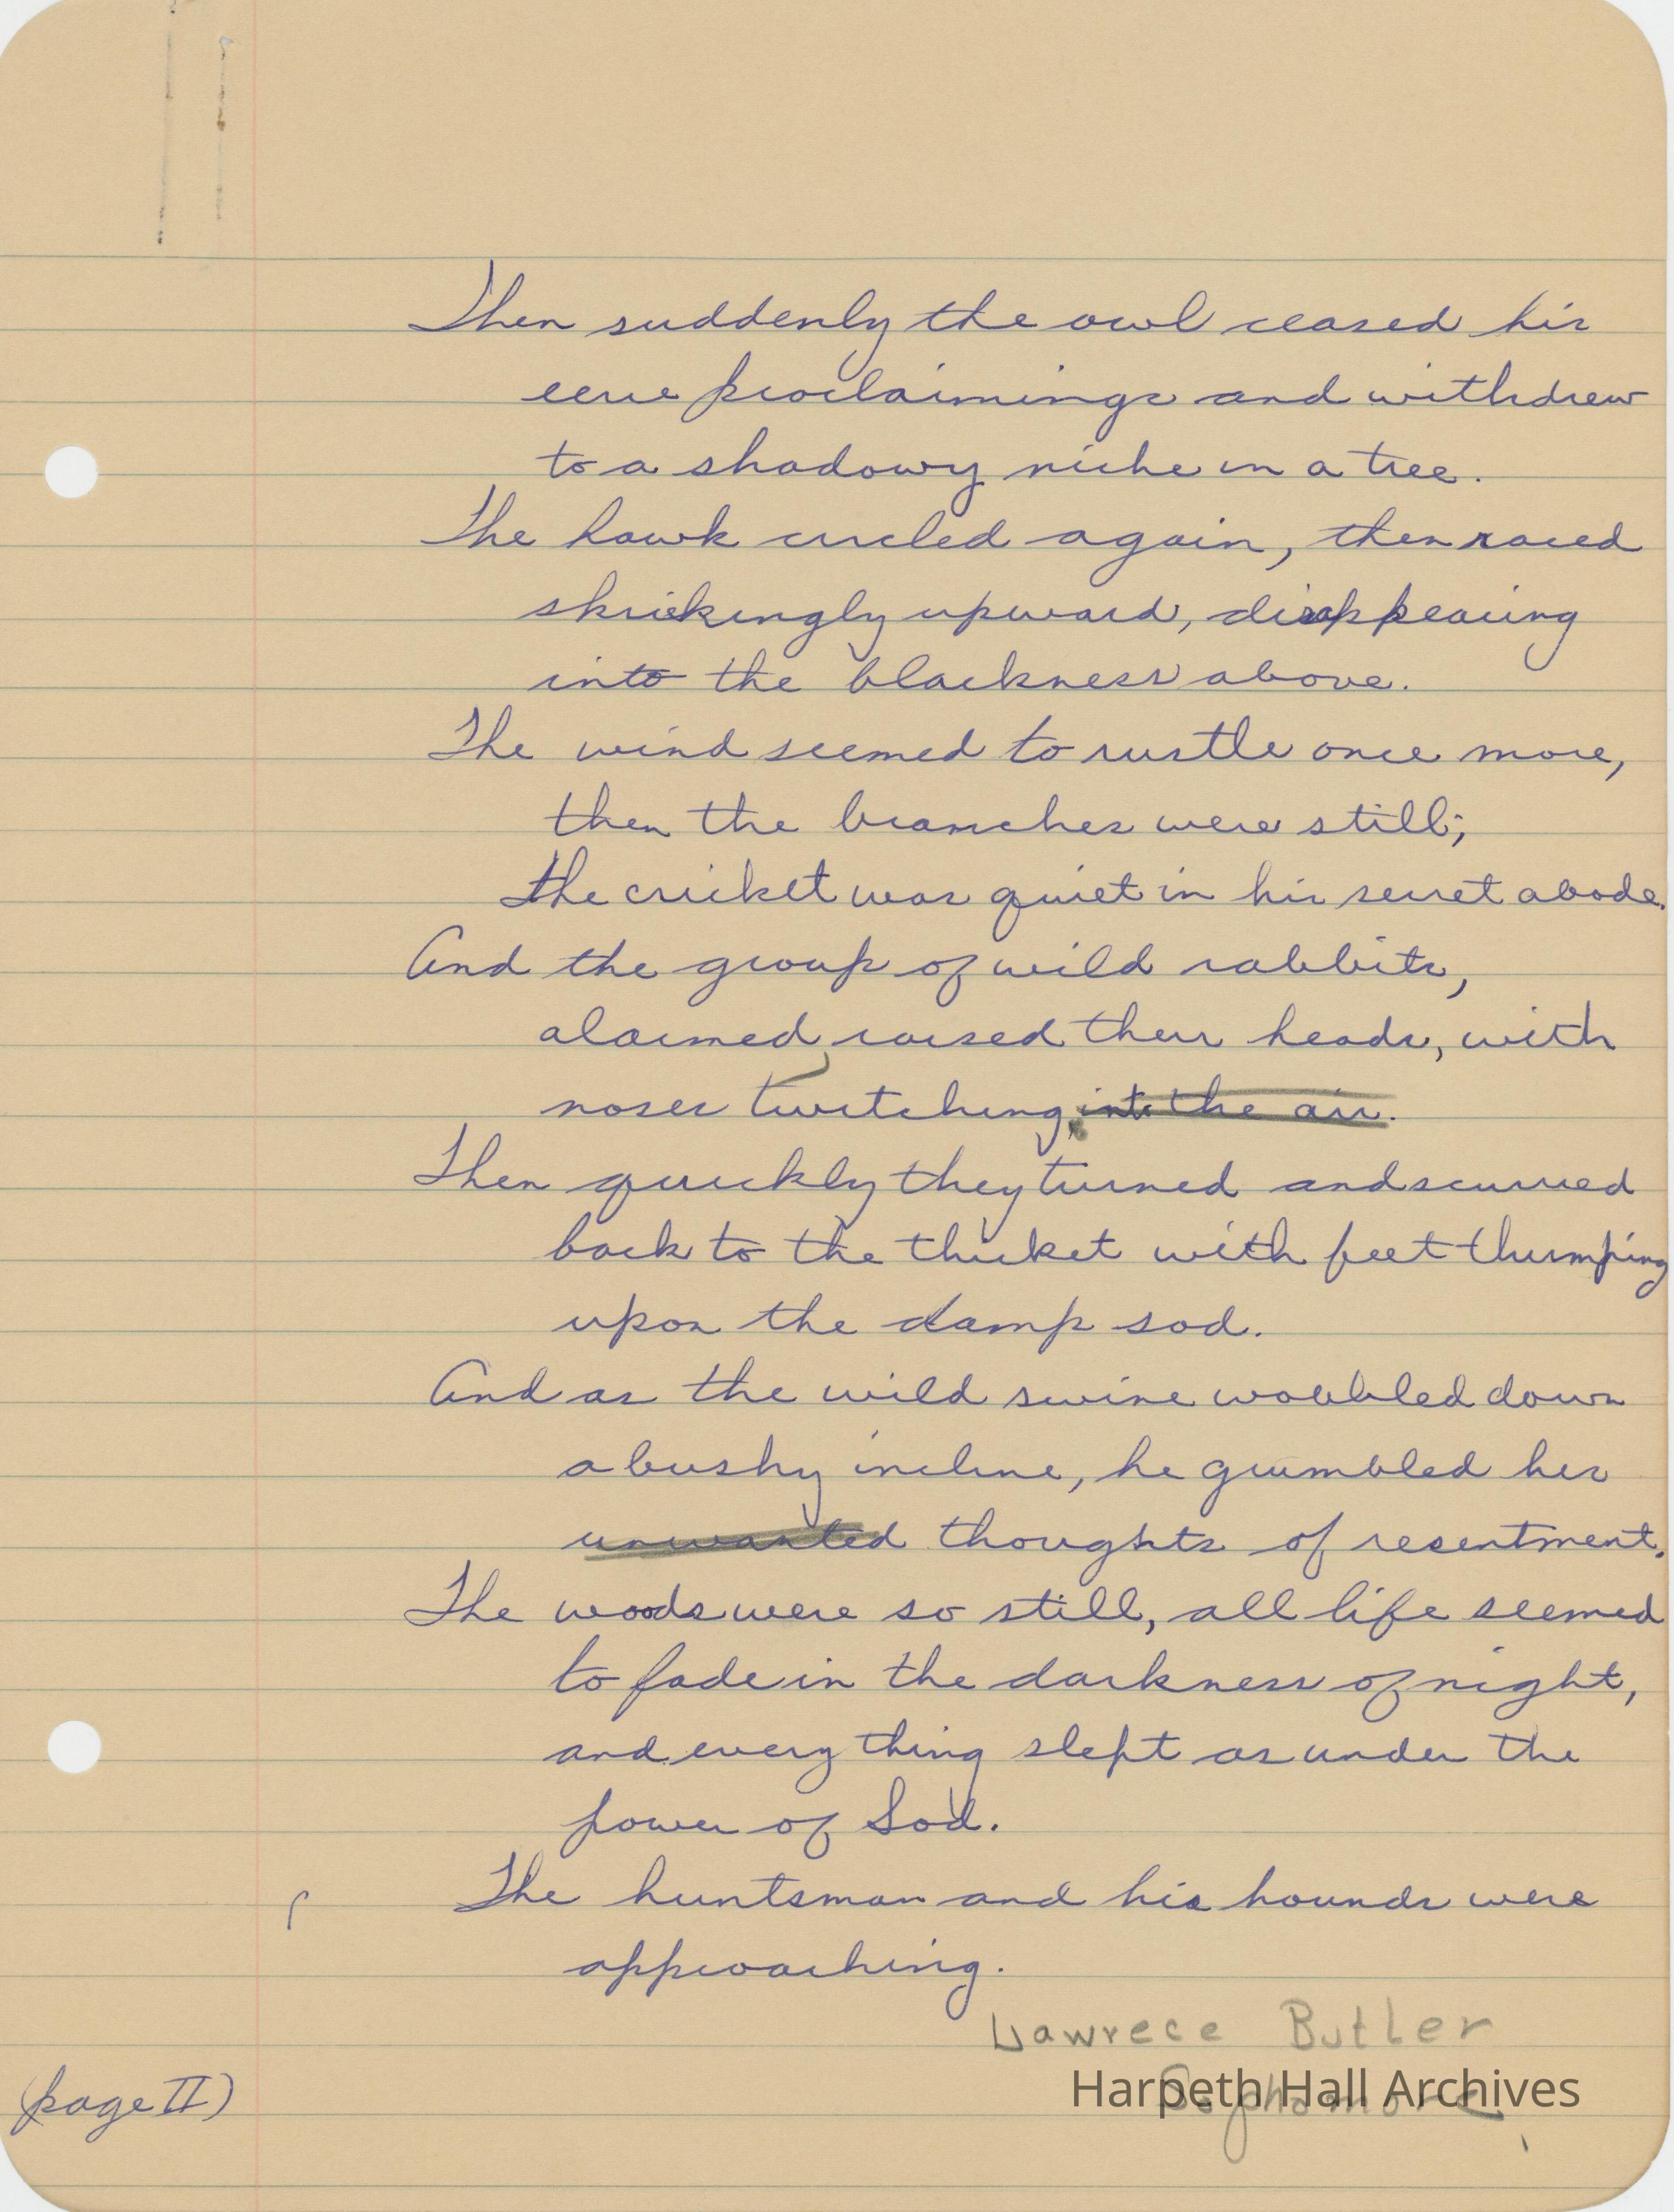 Then suddenly the owl ceased his
eerie proclaimings and withdrew
to a shadowy niche in a tree.
The hawk circled again, then raced
shriekingly upward, disappearing
into the blackness above.
The wind seemed to rustle once more,
then the branches were still;
the cricket was quiet in his secret abode.
And the group of wild rabbits,
alarmed, raised their heads, with
noses twitching, into the air.
Then quickly they turned and scurried
back to the thicket with feet thumping
upon the damp sod.
And as the wild swine wobbled down
a bushy incline, he grumbled his
unwanted thoughts of resentment.
The woods were so still, all life seemed
to fade in the darkness of night,
and every thing slept as under the
power of Sod.
The huntsman and his hounds were
approaching.
Lawrece Butler
Sophamore
Harpeth Hall Archives
(page II)